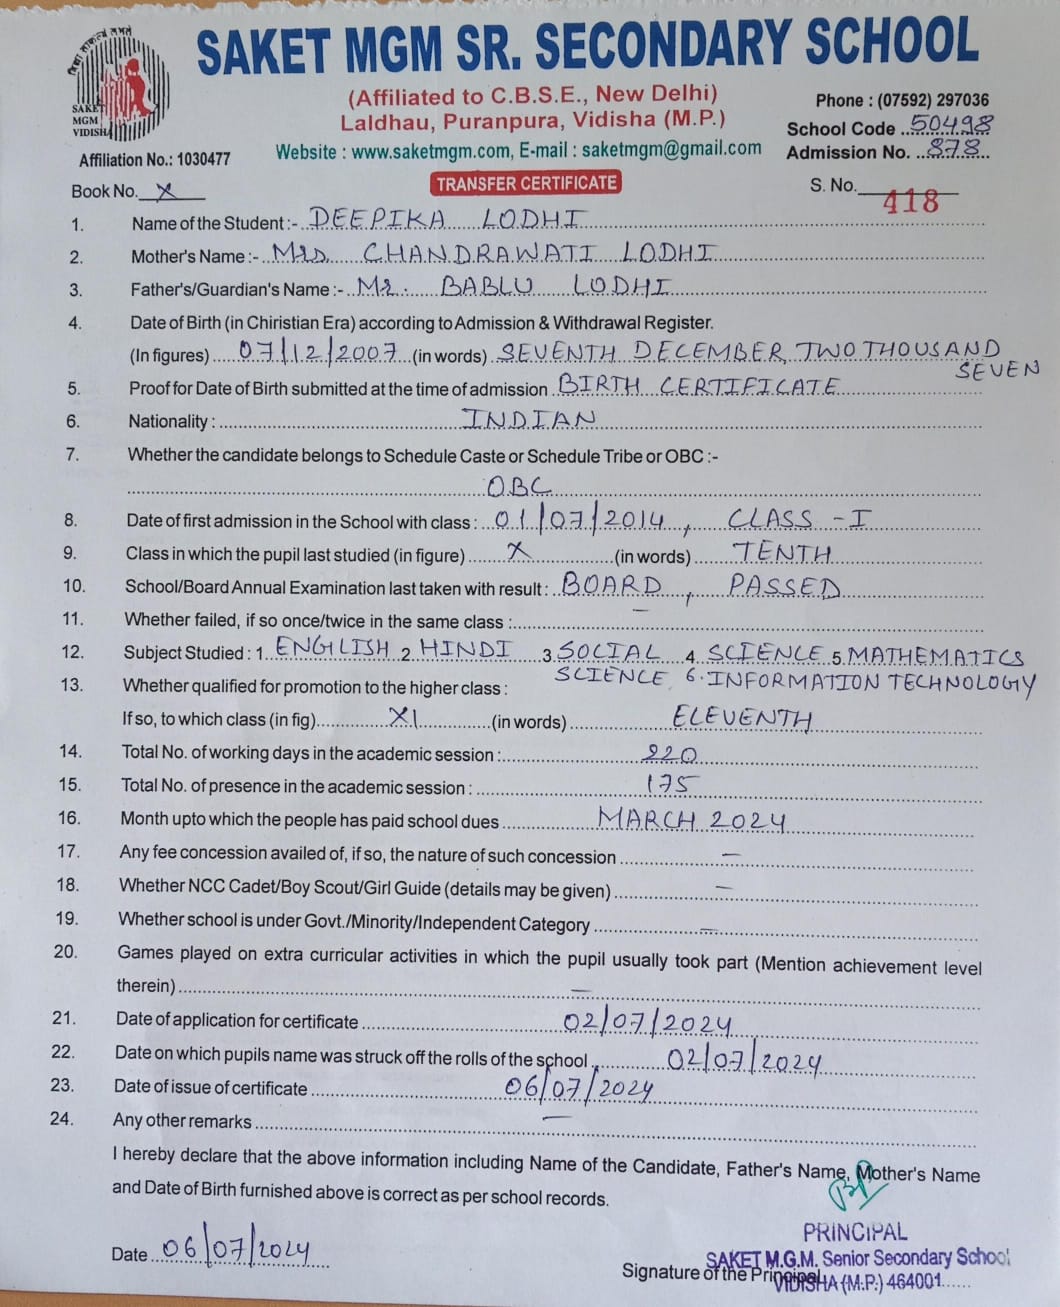 SAKET MGM SR. SECONDARY SCHOOL
SAKET
MGM
VIDISHA
(Affiliated to C.B.S.E., New Delhi)
Laldhau, Puranpura, Vidisha (M.P.)
Phone : (07592) 297036
School Code ..50498
Affiliation No.: 1030477
Website : www.saketmgm.com, E-mail : saketmgm@gmail.com
Admission No. ..878..
Book No. X
TRANSFER CERTIFICATE
S. No. 418
1. Name of the Student :- DEEPIKA LODHI
2. Mother's Name :- Mrs. CHANDRAWATI LODHI
3. Father's/Guardian's Name :- Mr. BABLU LODHI
4. Date of Birth (in Chiristian Era) according to Admission & Withdrawal Register.
(In figures) 07/12/2007 (in words) SEVENTH DECEMBER, TWO THOUSAND
SEVEN
5. Proof for Date of Birth submitted at the time of admission BIRTH CERTIFICATE
6. Nationality : INDIAN
7. Whether the candidate belongs to Schedule Caste or Schedule Tribe or OBC :-
OBC
8. Date of first admission in the School with class : 01/07/2014, CLASS - I
9. Class in which the pupil last studied (in figure) X (in words) TENTH
10. School/Board Annual Examination last taken with result : BOARD, PASSED
11. Whether failed, if so once/twice in the same class : —
12. Subject Studied : 1. ENGLISH 2. HINDI 3. SOCIAL 4. SCIENCE 5. MATHEMATICS
SCIENCE 6. INFORMATION TECHNOLOGY
13. Whether qualified for promotion to the higher class :
If so, to which class (in fig) XI (in words) ELEVENTH
14. Total No. of working days in the academic session : 220
15. Total No. of presence in the academic session : 175
16. Month upto which the people has paid school dues MARCH 2024
17. Any fee concession availed of, if so, the nature of such concession —
18. Whether NCC Cadet/Boy Scout/Girl Guide (details may be given) —
19. Whether school is under Govt./Minority/Independent Category —
20. Games played on extra curricular activities in which the pupil usually took part (Mention achievement level
therein) —
21. Date of application for certificate 02/07/2024
22. Date on which pupils name was struck off the rolls of the school 02/07/2024
23. Date of issue of certificate 06/07/2024
24. Any other remarks —
I hereby declare that the above information including Name of the Candidate, Father's Name, Mother's Name
and Date of Birth furnished above is correct as per school records.
PRINCIPAL
Date 06/07/2024
SAKET M.G.M. Senior Secondary School
Signature of the Principal
VIDISHA (M.P.) 464001